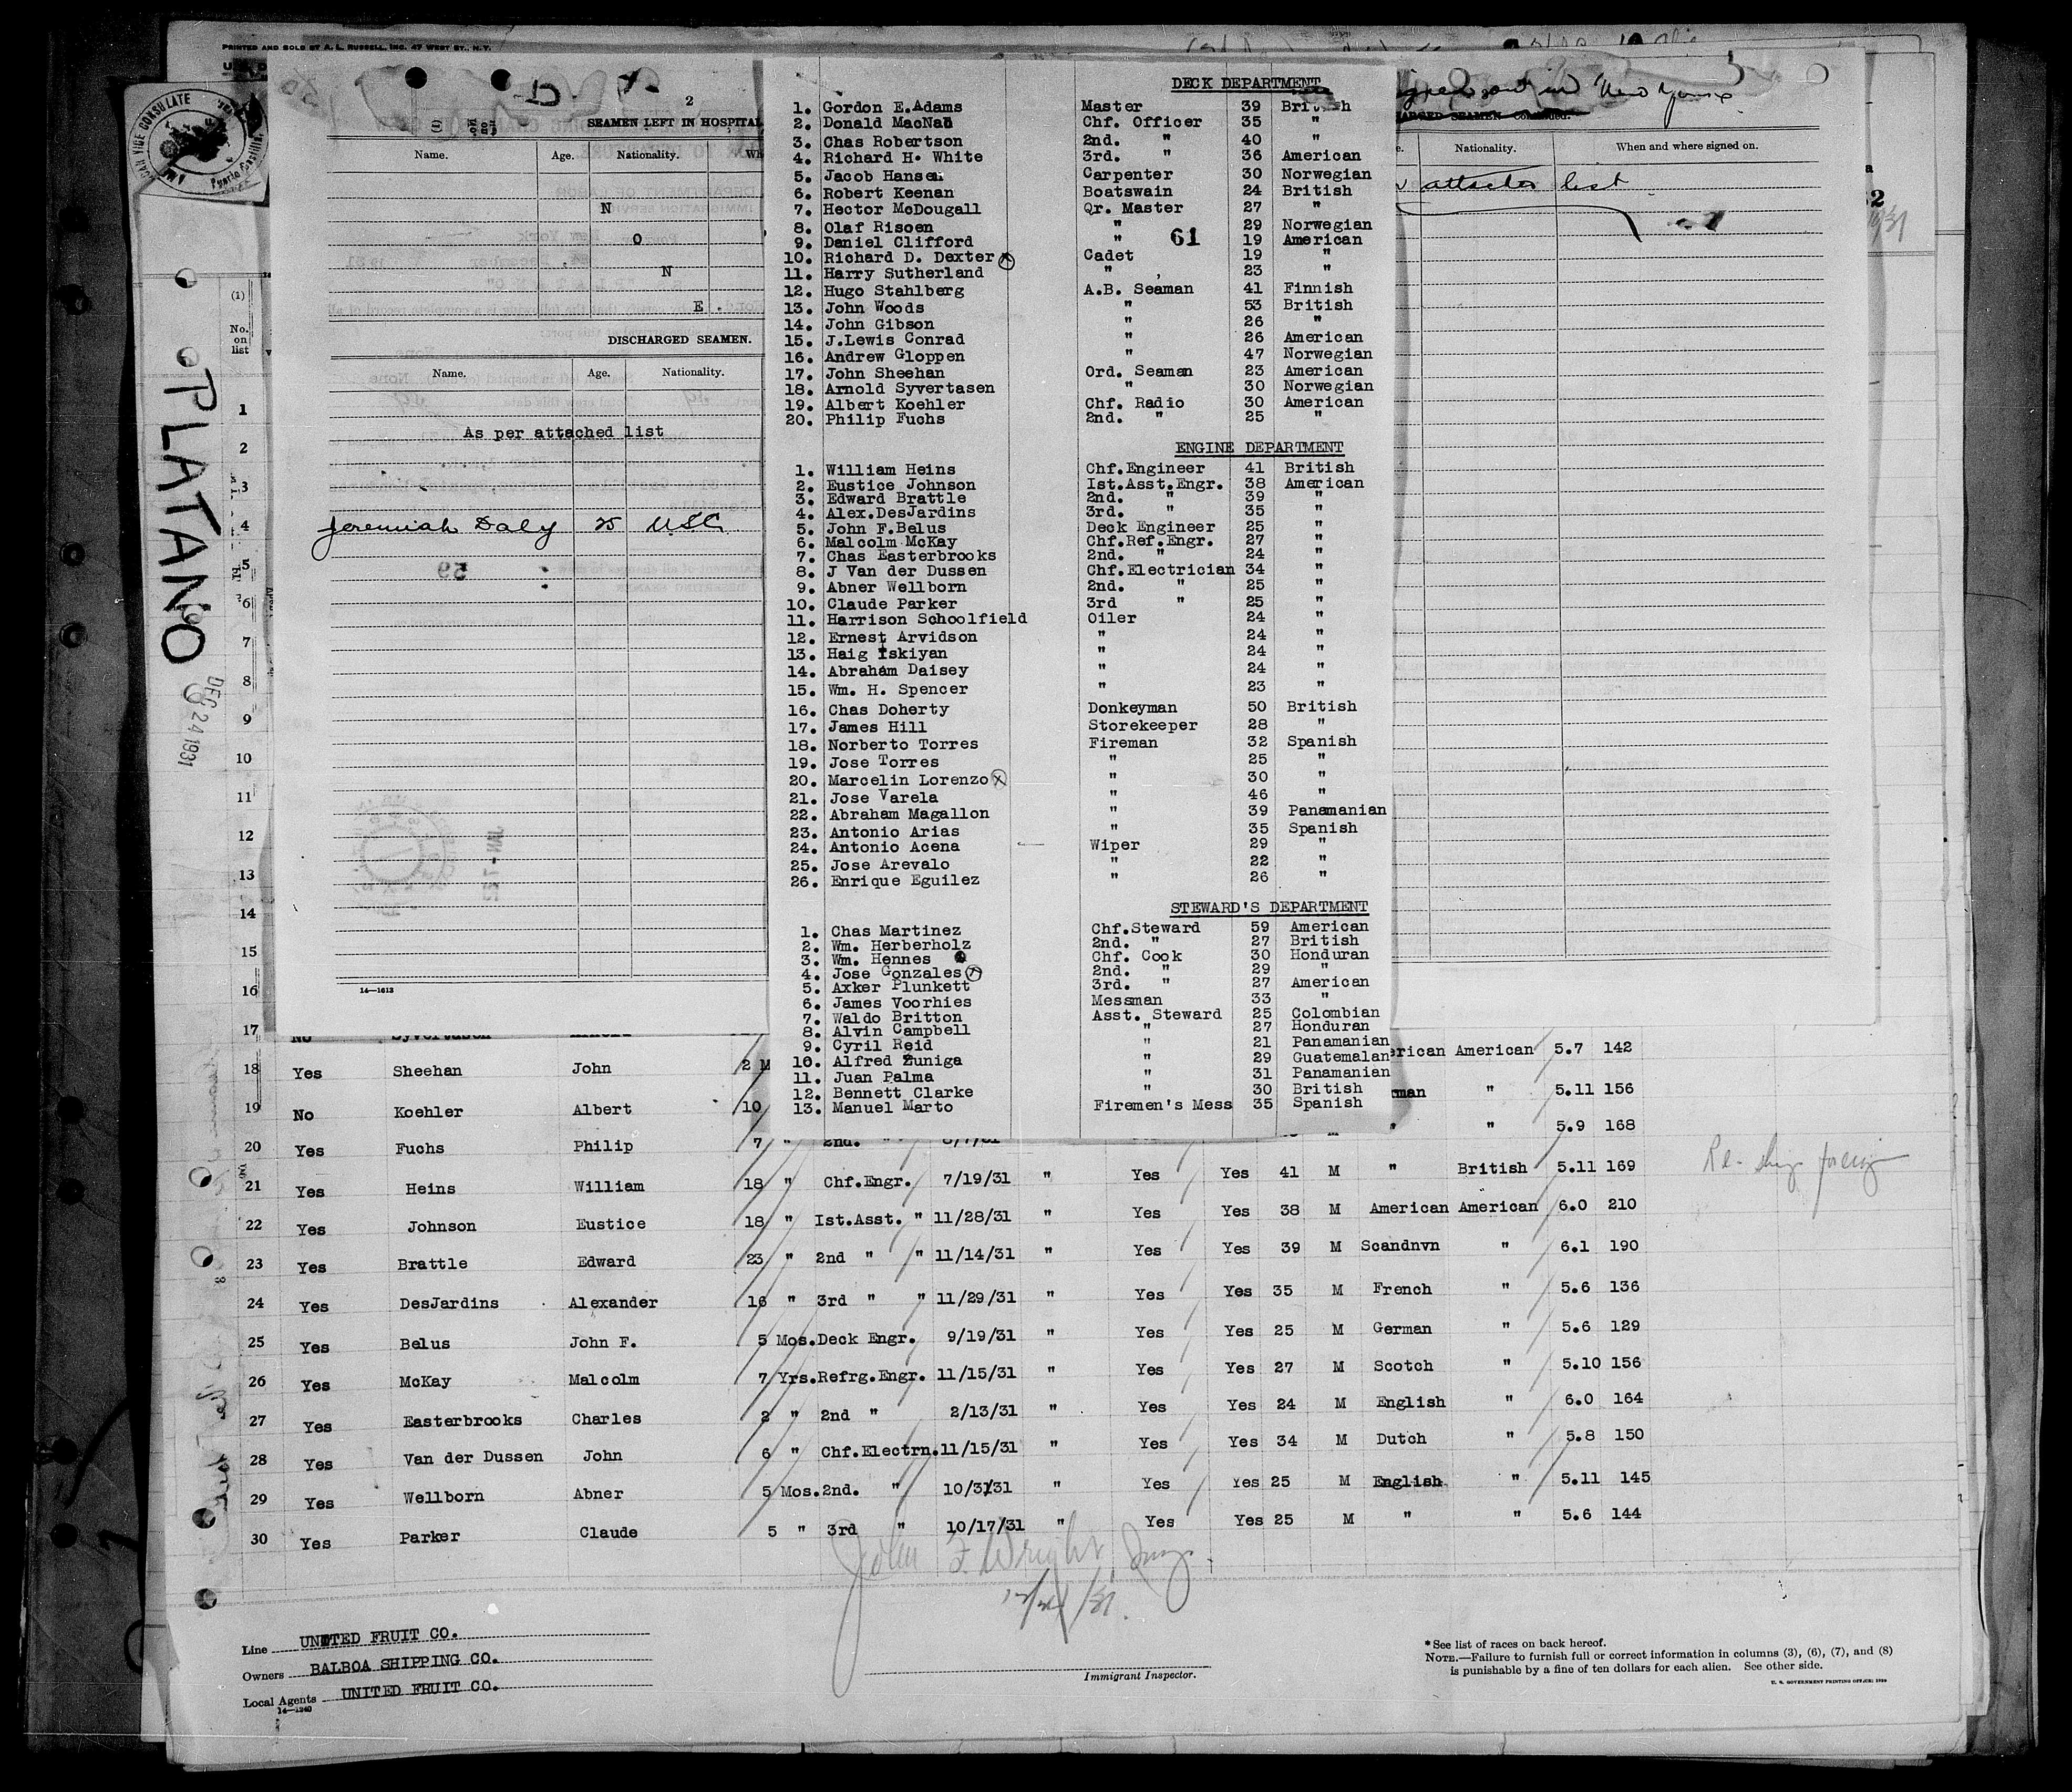 PRINTED AND SOLD BY A. L. RUSSELL, INC. 47 WEST ST., N.Y.
VICE CONSULATE
PLATANO
DEC 24 1931
2
SEAMEN LEFT IN HOSPITAL
Name. Age. Nationality.
N
O
N
E.
DISCHARGED SEAMEN.
Name. Age. Nationality.
As per attached list
Jeremiah Daly 25 USC
59
14—1613
DECK DEPARTMENT
1. Gordon E.Adams Master 39 British
2. Donald MacNab Chf. Officer 35 "
3. Chas Robertson 2nd. " 40 "
4. Richard H. White 3rd. " 36 American
5. Jacob Hansen Carpenter 30 Norwegian
6. Robert Keenan Boatswain 24 British
7. Hector McDougall Qr. Master 27 "
8. Olaf Risoen " 29 Norwegian
9. Daniel Clifford " 61 19 American
10. Richard D. Dexter Cadet 19 "
11. Harry Sutherland " 23 "
12. Hugo Stahlberg A.B. Seaman 41 Finnish
13. John Woods " 53 British
14. John Gibson " 26 "
15. J.Lewis Conrad " 26 American
16. Andrew Gloppen " 47 Norwegian
17. John Sheehan Ord. Seaman 23 American
18. Arnold Syvertasen " 30 Norwegian
19. Albert Koehler Chf. Radio 30 American
20. Philip Fuchs 2nd. " 25 "
ENGINE DEPARTMENT
1. William Heins Chf.Engineer 41 British
2. Eustice Johnson Ist.Asst.Engr. 38 American
3. Edward Brattle 2nd. " 39 "
4. Alex.DesJardins 3rd. " 35 "
5. John F.Belus Deck Engineer 25 "
6. Malcolm McKay Chf.Ref.Engr. 27 "
7. Chas Easterbrooks 2nd. " 24 "
8. J Van der Dussen Chf.Electrician 34 "
9. Abner Wellborn 2nd. " 25 "
10. Claude Parker 3rd " 25 "
11. Harrison Schoolfield Oiler 24 "
12. Ernest Arvidson " 24 "
13. Haig Iskiyan " 24 "
14. Abraham Daisey " 24 "
15. Wm. H. Spencer " 23 "
16. Chas Doherty Donkeyman 50 British
17. James Hill Storekeeper 28 "
18. Norberto Torres Fireman 32 Spanish
19. Jose Torres " 25 "
20. Marcelin Lorenzo " 30 "
21. Jose Varela " 46 "
22. Abraham Magallon " 39 Panamanian
23. Antonio Arias " 35 Spanish
24. Antonio Acena Wiper 29 "
25. Jose Arevalo " 22 "
26. Enrique Eguilez " 26 "
STEWARD'S DEPARTMENT
1. Chas Martinez Chf.Steward 59 American
2. Wm. Herberholz 2nd. " 27 British
3. Wm. Hennes Chf. Cook 30 Honduran
4. Jose Gonzales 2nd. " 29 "
5. Axker Plunkett 3rd. " 27 American
6. James Voorhies Messman 33 "
7. Waldo Britton Asst. Steward 25 Colombian
8. Alvin Campbell " 27 Honduran
9. Cyril Reid " 21 Panamanian
10. Alfred Zuniga " 29 Guatemalan
11. Juan Palma " 31 Panamanian
12. Bennett Clarke " 30 British
13. Manuel Marto Firemen's Mess 35 Spanish
signed on in New York
SEAMEN Continued.
Nationality. When and where signed on.
attached list
(1)
No. on list
1
2
3
4
5
6
7
8
9
10
11
12
13
14
15
16
17 No
18 Yes Sheehan John American 5.7 142
19 No Koehler Albert 10 " 5.11 156
20 Yes Fuchs Philip 7 " 2nd. " " 5.9 168
21 Yes Heins William 18 " Chf.Engr. 7/19/31 " Yes Yes 41 M " British 5.11 169 Re-ship foreign
22 Yes Johnson Eustice 18 " Ist.Asst. " 11/28/31 " Yes Yes 38 M American American 6.0 210
23 Yes Brattle Edward 23 " 2nd " " 11/14/31 " Yes Yes 39 M Scandnvn " 6.1 190
24 Yes DesJardins Alexander 16 " 3rd " " 11/29/31 " Yes Yes 35 M French " 5.6 136
25 Yes Belus John F. 5 Mos. Deck Engr. 9/19/31 " Yes Yes 25 M German " 5.6 129
26 Yes McKay Malcolm 7 Yrs. Refrg.Engr. 11/15/31 " Yes Yes 27 M Scotch " 5.10 156
27 Yes Easterbrooks Charles 2 " 2nd " 2/13/31 " Yes Yes 24 M English " 6.0 164
28 Yes Van der Dussen John 6 " Chf.Electrn. 11/15/31 " Yes Yes 34 M Dutch " 5.8 150
29 Yes Wellborn Abner 5 Mos. 2nd. " 10/31/31 " Yes Yes 25 M English " 5.11 145
30 Yes Parker Claude 5 " 3rd " 10/17/31 " Yes Yes 25 M " " 5.6 144
John F. Wright
Immigrant Inspector.
Line UNITED FRUIT CO.
Owners BALBOA SHIPPING CO.
Local Agents UNITED FRUIT CO.
14—1240
* See list of races on back hereof.
NOTE.—Failure to furnish full or correct information in columns (3), (6), (7), and (8)
is punishable by a fine of ten dollars for each alien. See other side.
U. S. GOVERNMENT PRINTING OFFICE: 1930